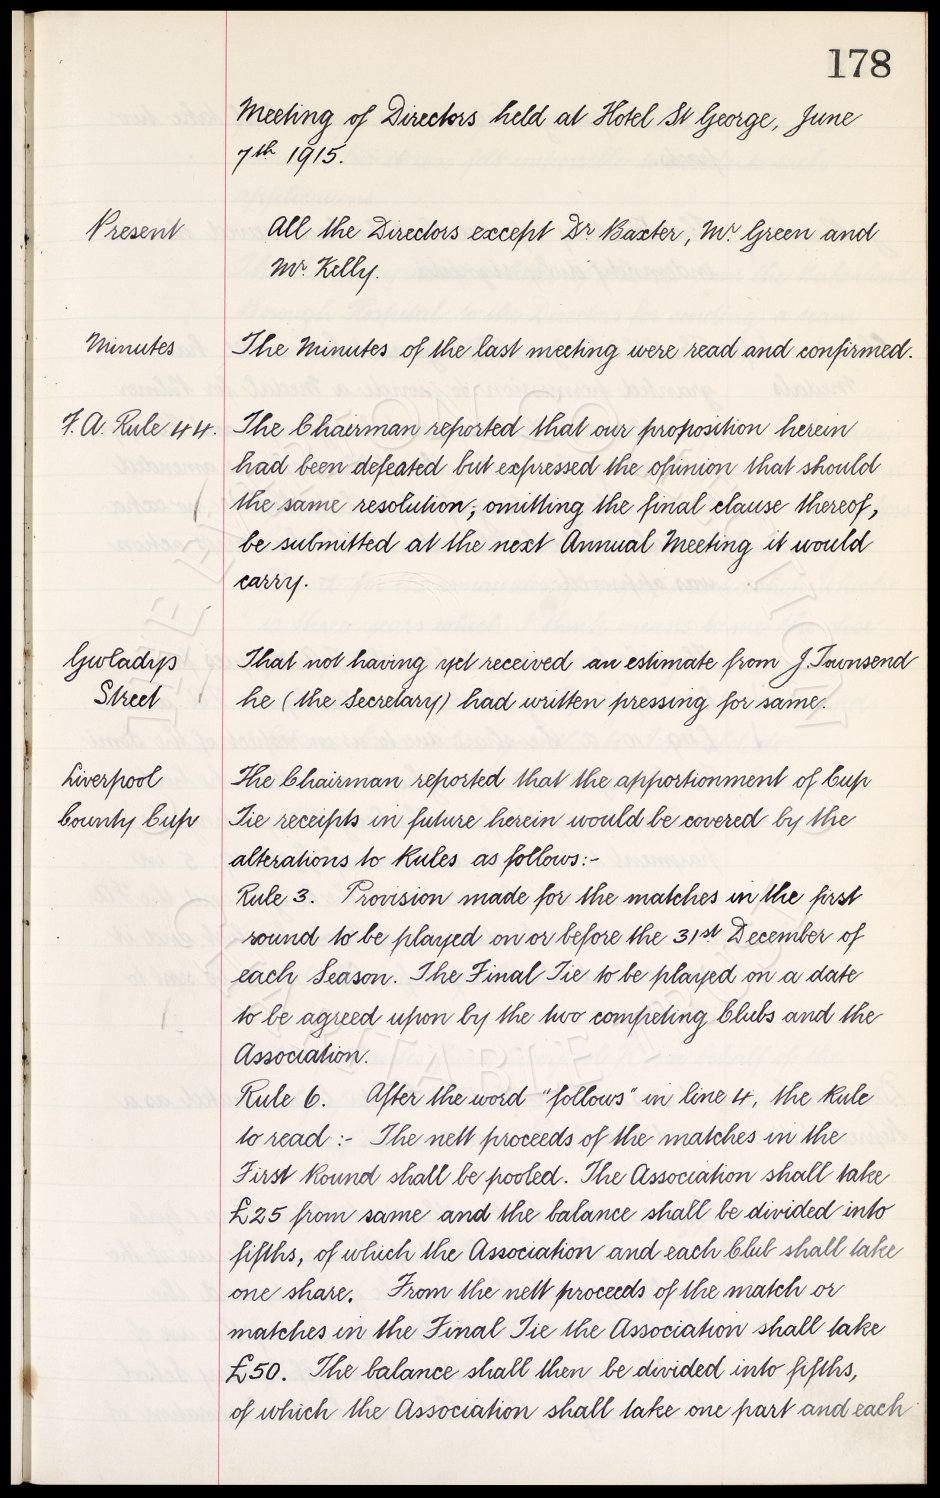 178
Meeting of Directors held at Hotel St George, June
7th 1915.
Present All the Directors except Dr Baxter, Mr. Green and
Mr. Kelly.
Minutes The Minutes of the last meeting were read and confirmed.
F.A. Rule 44. The Chairman reported that our proposition herein
had been defeated but expressed the opinion that should
the same resolution, omitting the final clause thereof,
be submitted at the next Annual Meeting it would
carry.
Gwladys That not having yet received an estimate from J. Townsend
Street he (the Secretary) had written pressing for same.
Liverpool The Chairman reported that the apportionment of Cup
County Cup Tie receipts in future herein would be covered by the
alterations to Rules as follows:-
Rule 3. Provision made for the matches in the first
round to be played on or before the 31st December of
each Season. The Final Tie to be played on a date
to be agreed upon by the two competing Clubs and the
Association.
Rule 6. After the word "follows" in line 4, the Rule
to read :- The nett proceeds of the matches in the
First Round shall be pooled. The Association shall take
£25 from same and the balance shall be divided into
fifths, of which the Association and each Club shall take
one share. From the nett proceeds of the match or
matches in the Final Tie the Association shall take
£50. The balance shall then be divided into fifths,
of which the Association shall take one part and each